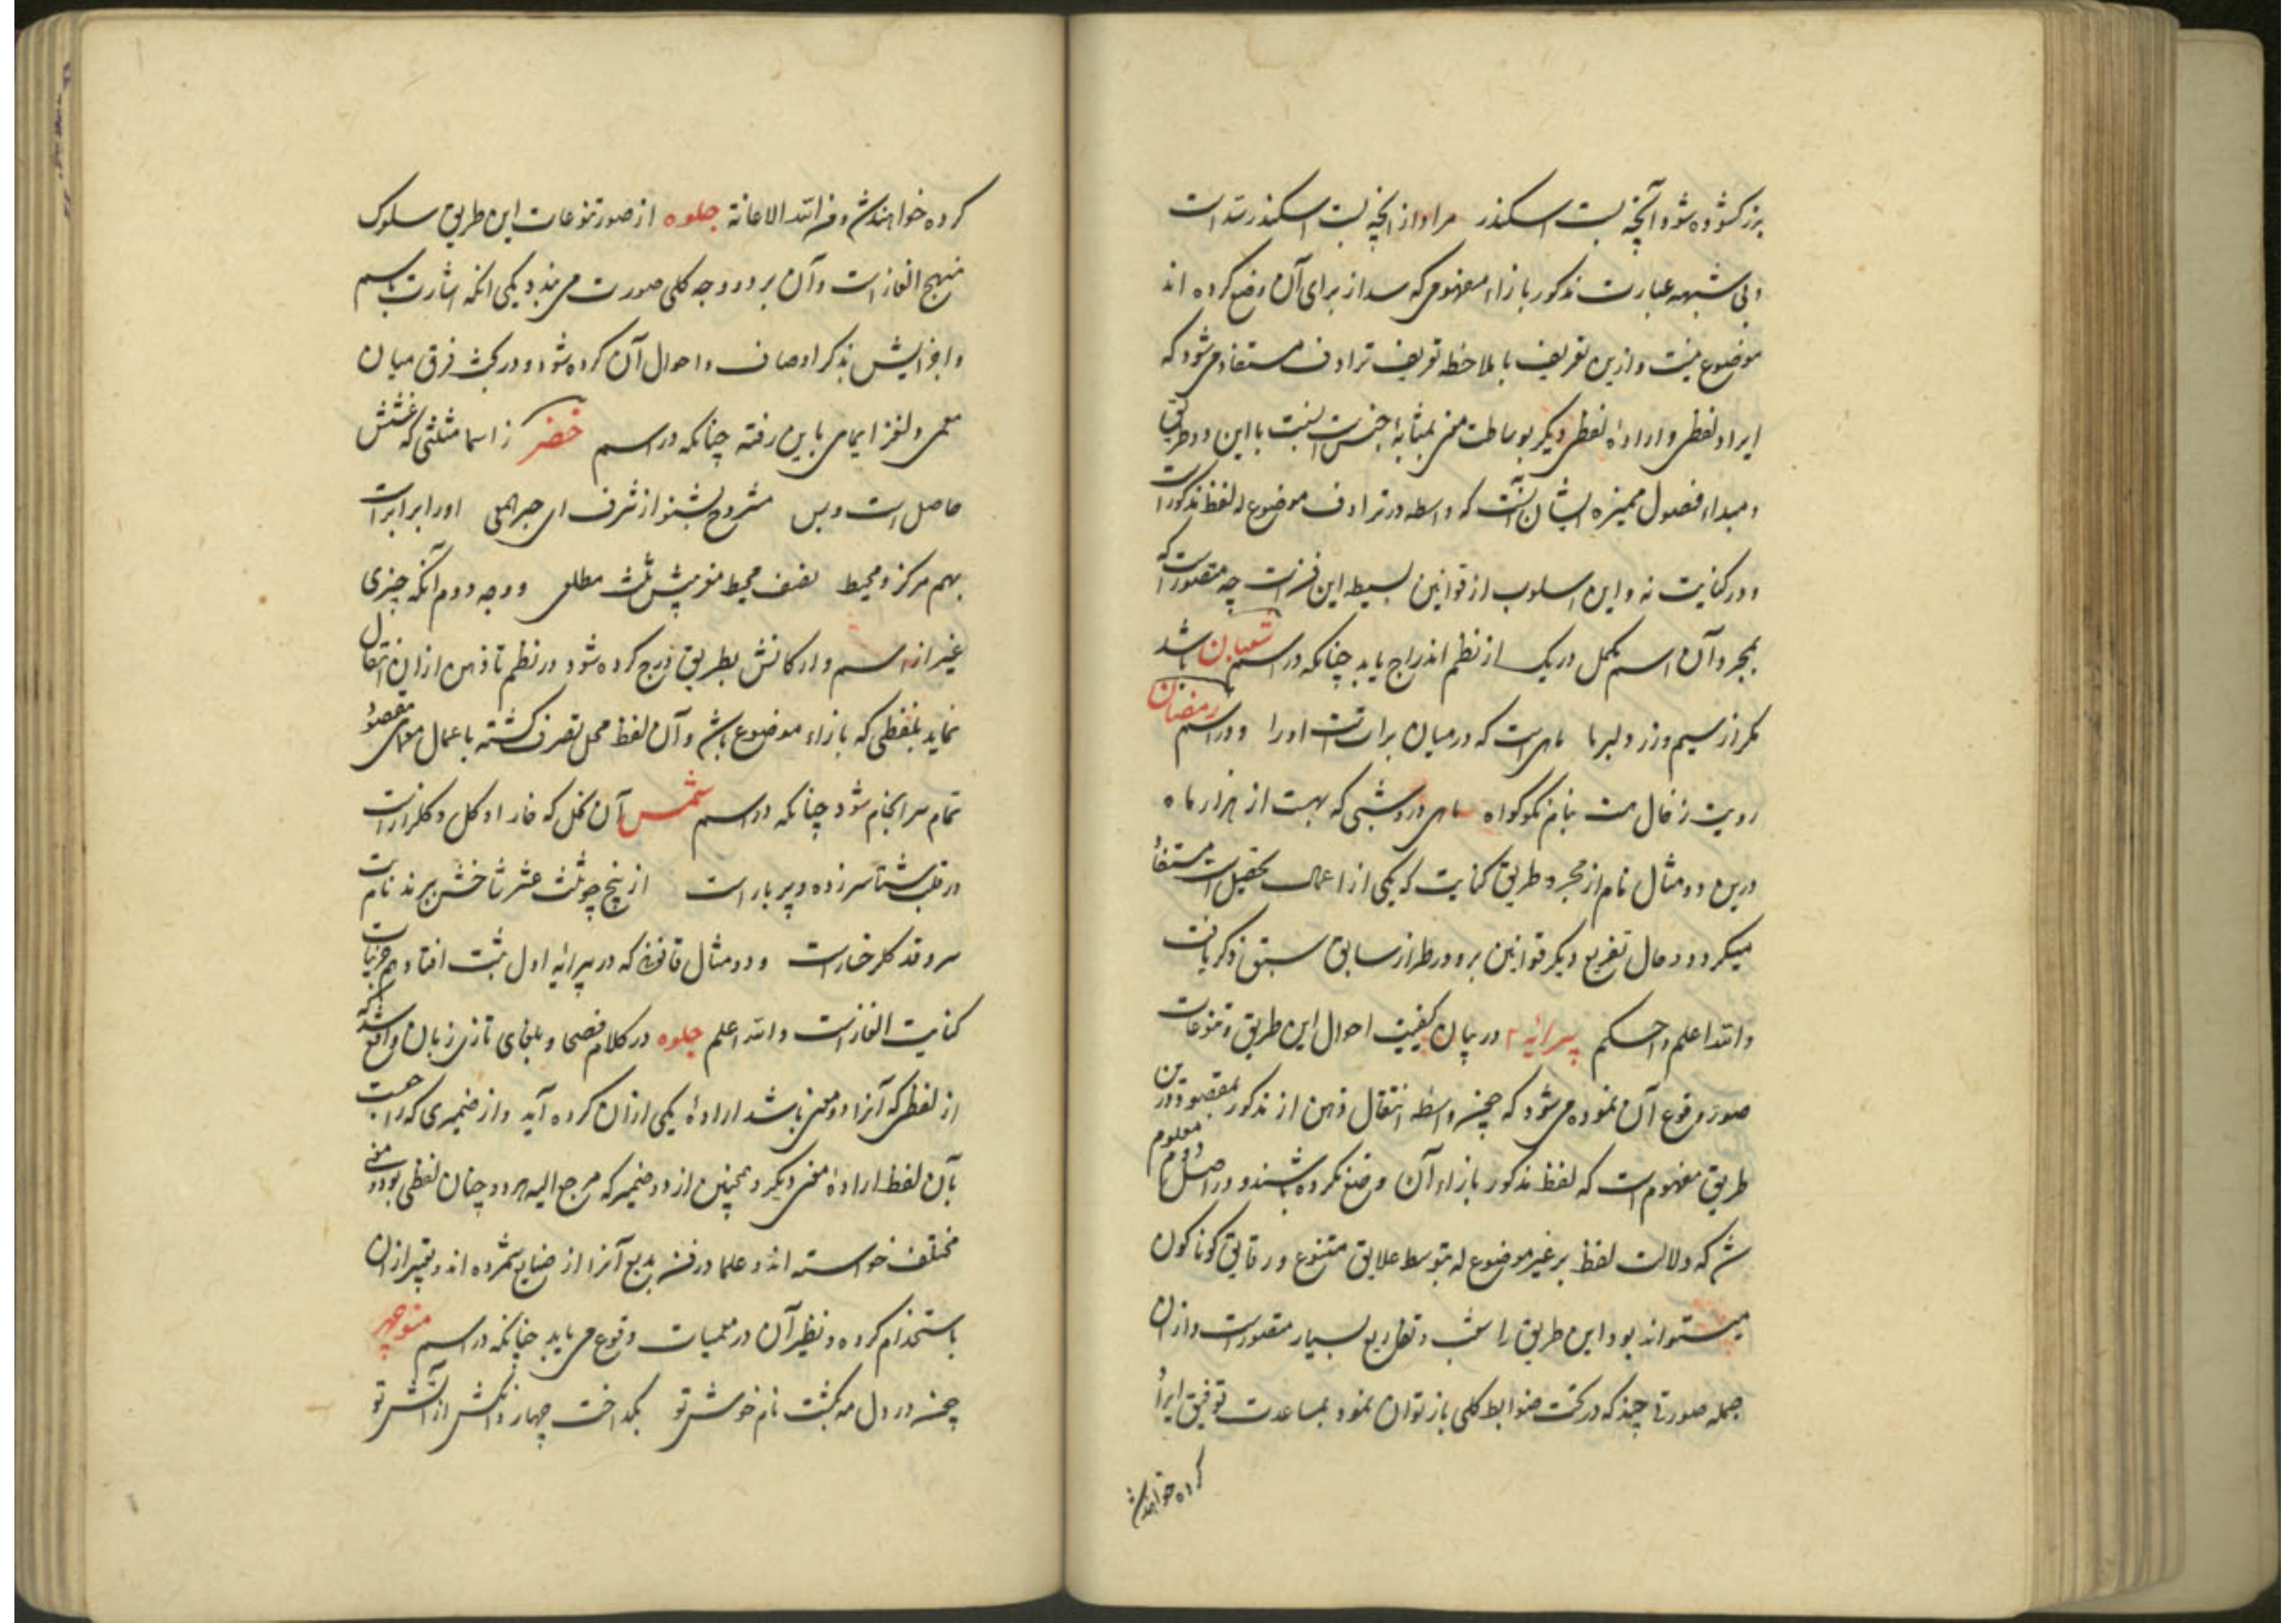 بزر کشوده شود آنچه بست اسکندر مراد از آنچه بست اسکندر سد است
و بی شبهه عبارت مذکور بازاء مفهومی که سد از برای آن وضع کرده اند
موضوع نیست و ازین تعریف با ملاحظه تعریف ترادف مستفاد می شود که
ایراد لفظی و اراده لفظی دیگر بوساطت معنی بمثابه جنس است نسبت با این دو طریق
و مبداء فصول ممیزه ایشان آنست که واسطه در ترادف موضوع له لفظ مذکور است
و در کنایت نه و این اسلوب از قوانین بسیطه این فن است چه متصور است که
بمجرد آن اسم مکمل در یک از نظم اندراج یابد چنانکه در اسم شعبان باشد
مکر از سیم وزر دلبر ما ماهی است که در میان برات است اورا و در اسم رمضان
رویت ز خال هست بنام نکو کواه ماهی درو شبی که بهست از هزار ماه
درین دو مثال نام از مجرد طریق کنایت که یکی از اعمال تحصیل است مستفاد
میکردد و حال تفریع دیگر قوانین برو در طراز سابق سبق ذکر یافت
والله اعلم و احکم پیرایه ۲ در بیان کیفیت احوال این طریق و تنوعات
صور وقوع آن نموده می شود که چون واسطه انتقال ذهن از مذکور بمقصود درین
طریق مفهوم است که لفظ مذکور بازاء آن وضع نکرده باشند و در اصل دوم معلوم
شد که دلالت لفظ بر غیر موضوع له بتوسط علایق متنوع و رقایق کوناکون
میتواند بود و این طریق را شعب و تفاریع بسیار متصور است و از ان
جمله صورتی چند که در تحت ضوابط کلی باز توان نمود بمساعدت توفیق ایراد
کرده خواهد شد
کرده خواهد شد و من الله الاعانة جلوه از صور تنوعات این طریق سلوک
منهج الغاز است و آن بر دو وجه کلی صورت می بندد یکی آنکه اشارت باسم
و اجزایش بذکر اوصاف و احوال آن کرده شود و در بحث فرق میان
معمی و لغز ایمای باین رفته چنانکه در اسم خضر ز اسما مثلثی که غشش
حاصل است و بس مشروح بشنو از شرف ای حبر المعی اورا برابر است
بهم مرکز و محیط نصف محیط منو پیش ثلث مطلعی و وجه دوم آنکه چیزی
غیر از اسم و ارکانش بطریق درج کرده شود در نظم تا ذهن از ان انتقال
نماید بلفظی که بازاء موضوع باشد و آن لفظ محل تصرف کشته باعمال معمای مقصود
تمام سر انجام شود چنانکه در اسم شمس آن نخل که خار او کل و کلزار است
در قلب شتا سر زده و پر بار است از پنج چو ثلث عشر شاخش ببرند نام بت
سرو قد کلرخسار است و دو مثال قانونی که در پیرایه اول ثبت افتاد هم از جزئیات
کنایت الغاز است والله اعلم جلوه در کلام فصحا و بلغای تازی زبان واقع شده که
از لفظی که آنرا دو معنی باشد اراده یکی از ان کرده آید و از ضمیری که راجعست
بآن لفظ اراده معنی دیگر و همچنین از دو ضمیر که مرجع الیه هر دو چنان لفظی بود دو معنی
مختلف خواسته اند و علما در فن بدیع آنرا از صنایع شمرده اند و تعبیر از ان
باستخدام کرده و نظیر آن در معمیات وقوع می یابد چنانکه در اسم منوچهر
چون در دل مه بکشت نام خوش تو بکداخت چهار دانکش از آتش تو